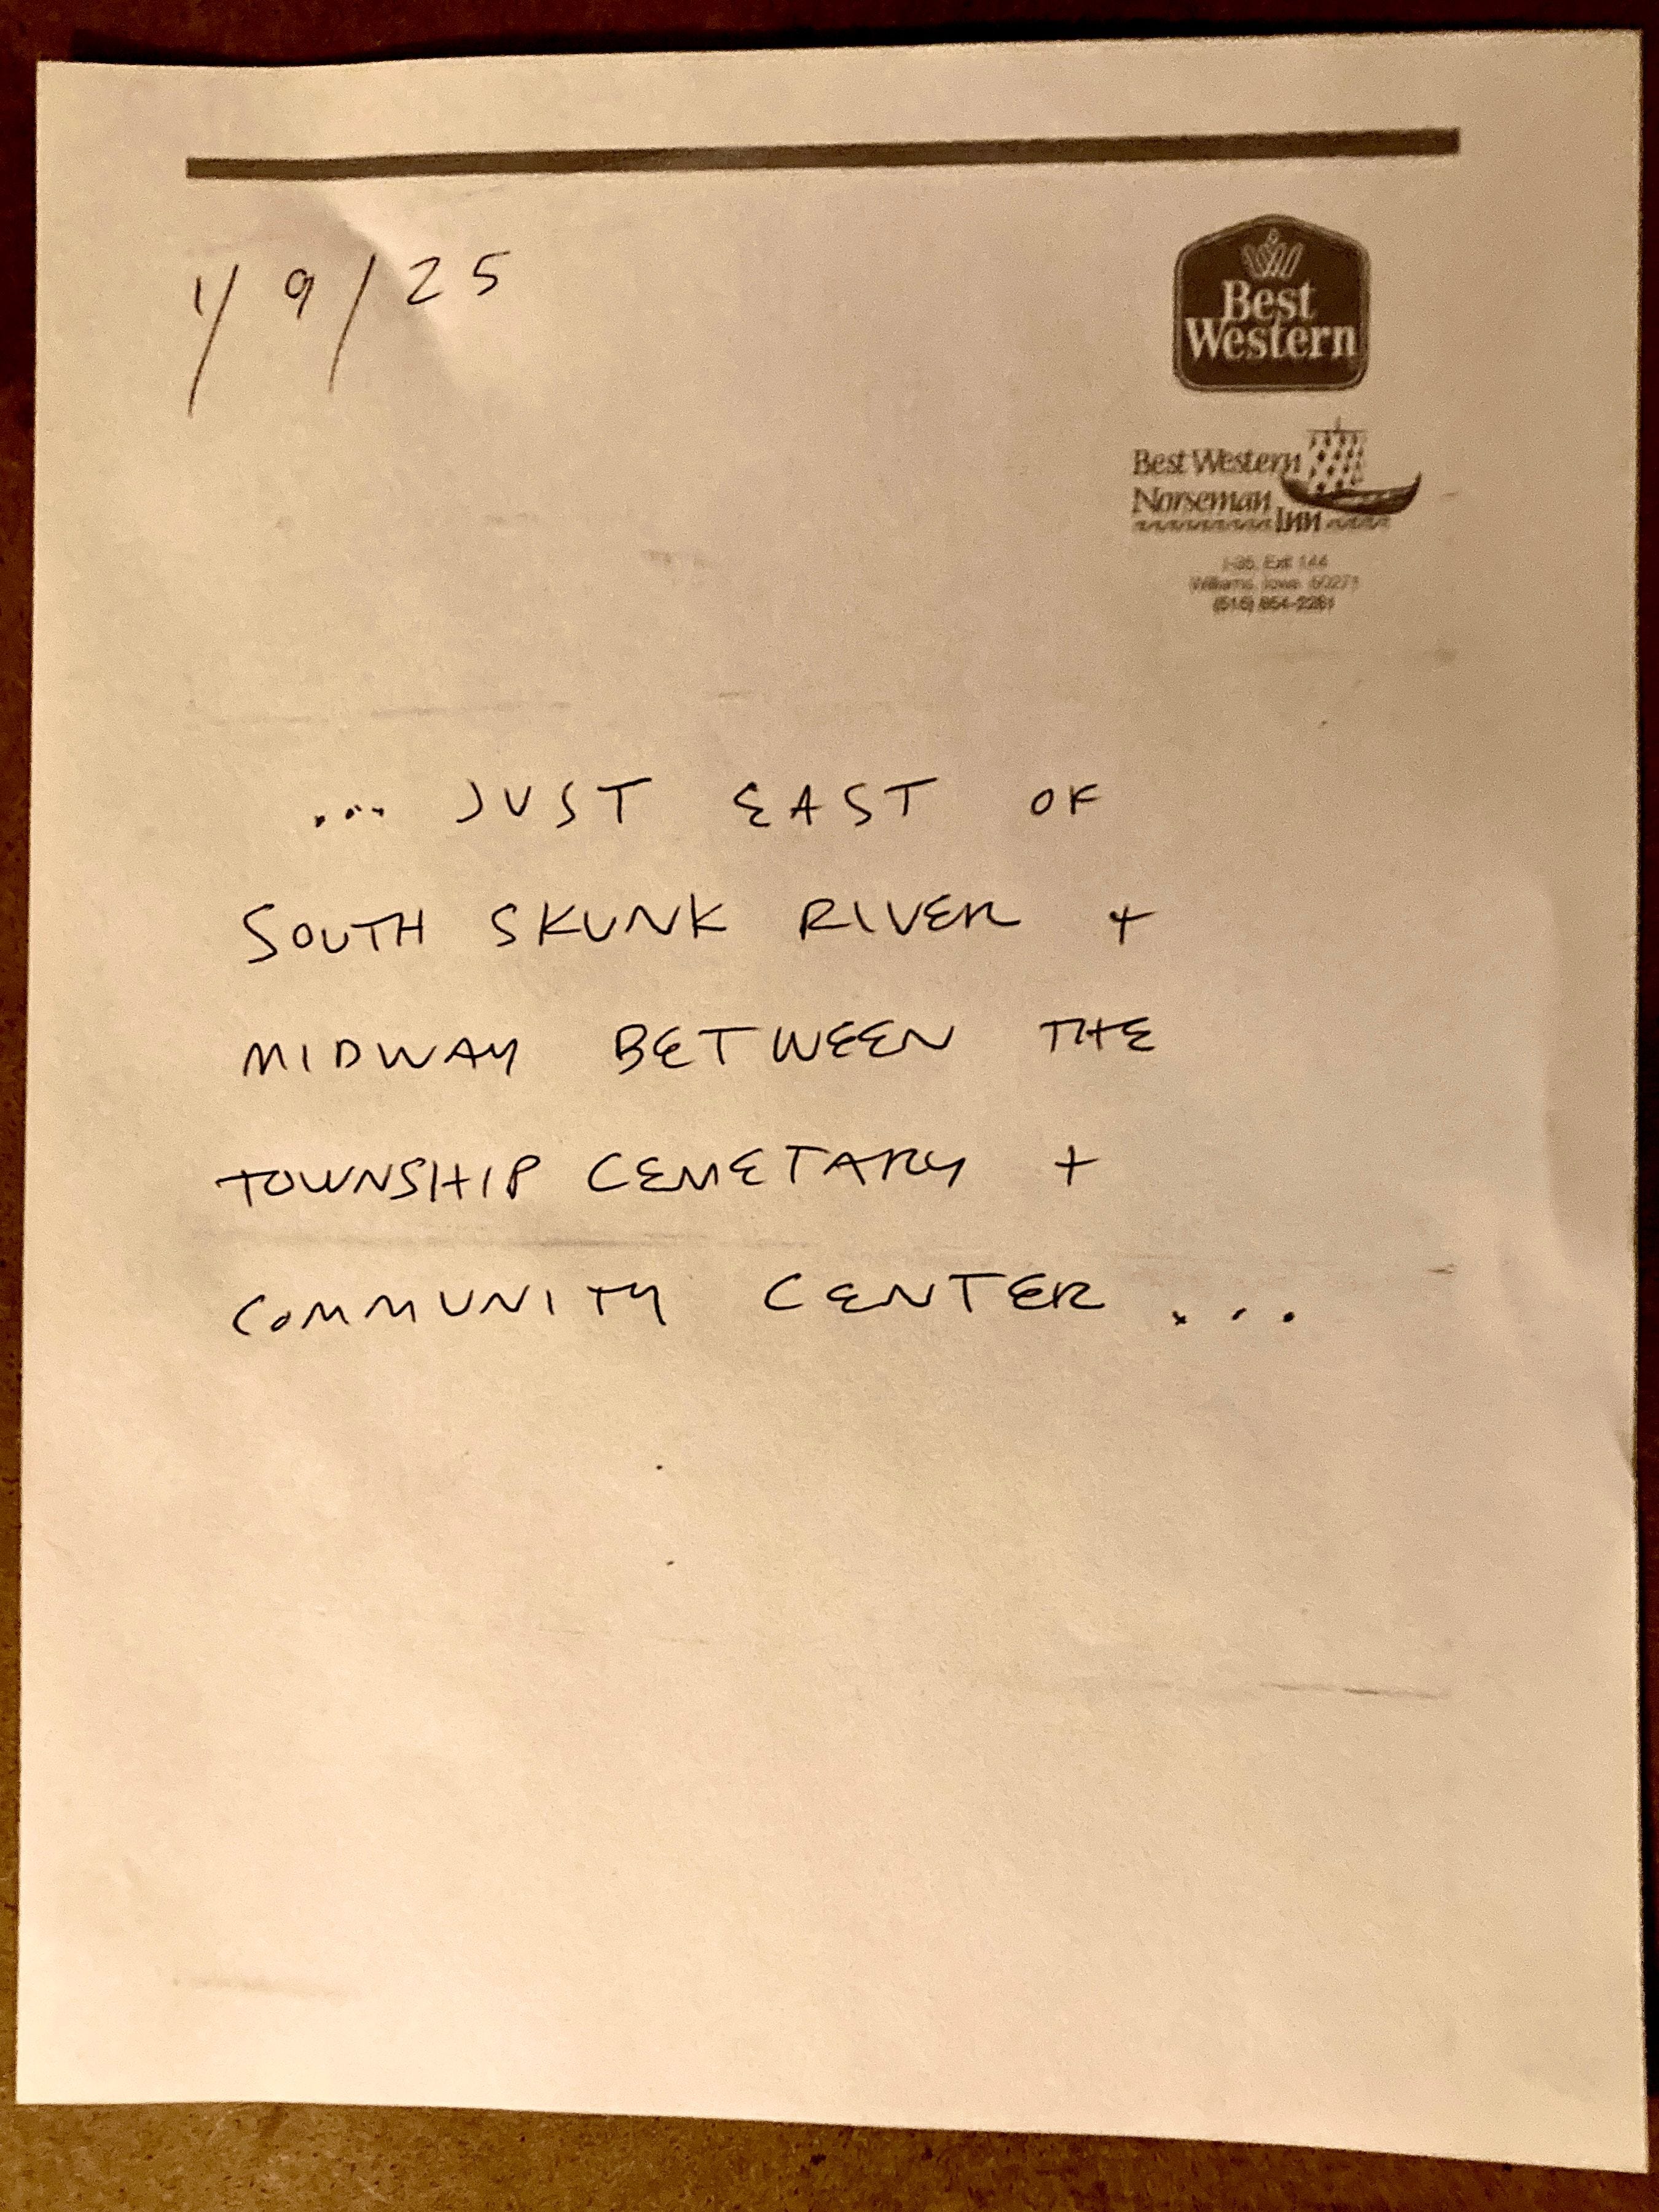 1/9/25
Best
Western
Best Western
Norseman
Inn
I-35, Exit 144
Williams, Iowa 50271
(515) 854-2281
... JUST EAST OF
SOUTH SKUNK RIVER +
MIDWAY BETWEEN THE
TOWNSHIP CEMETARY +
COMMUNITY CENTER ...